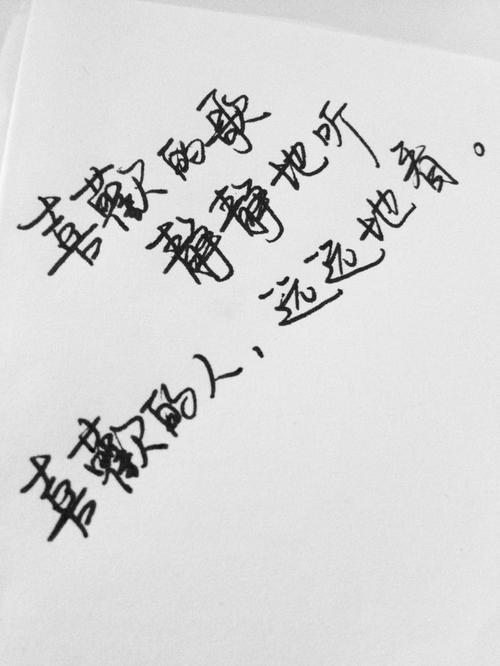 喜歡的歌
静静地听
喜歡的人，
远远地看。